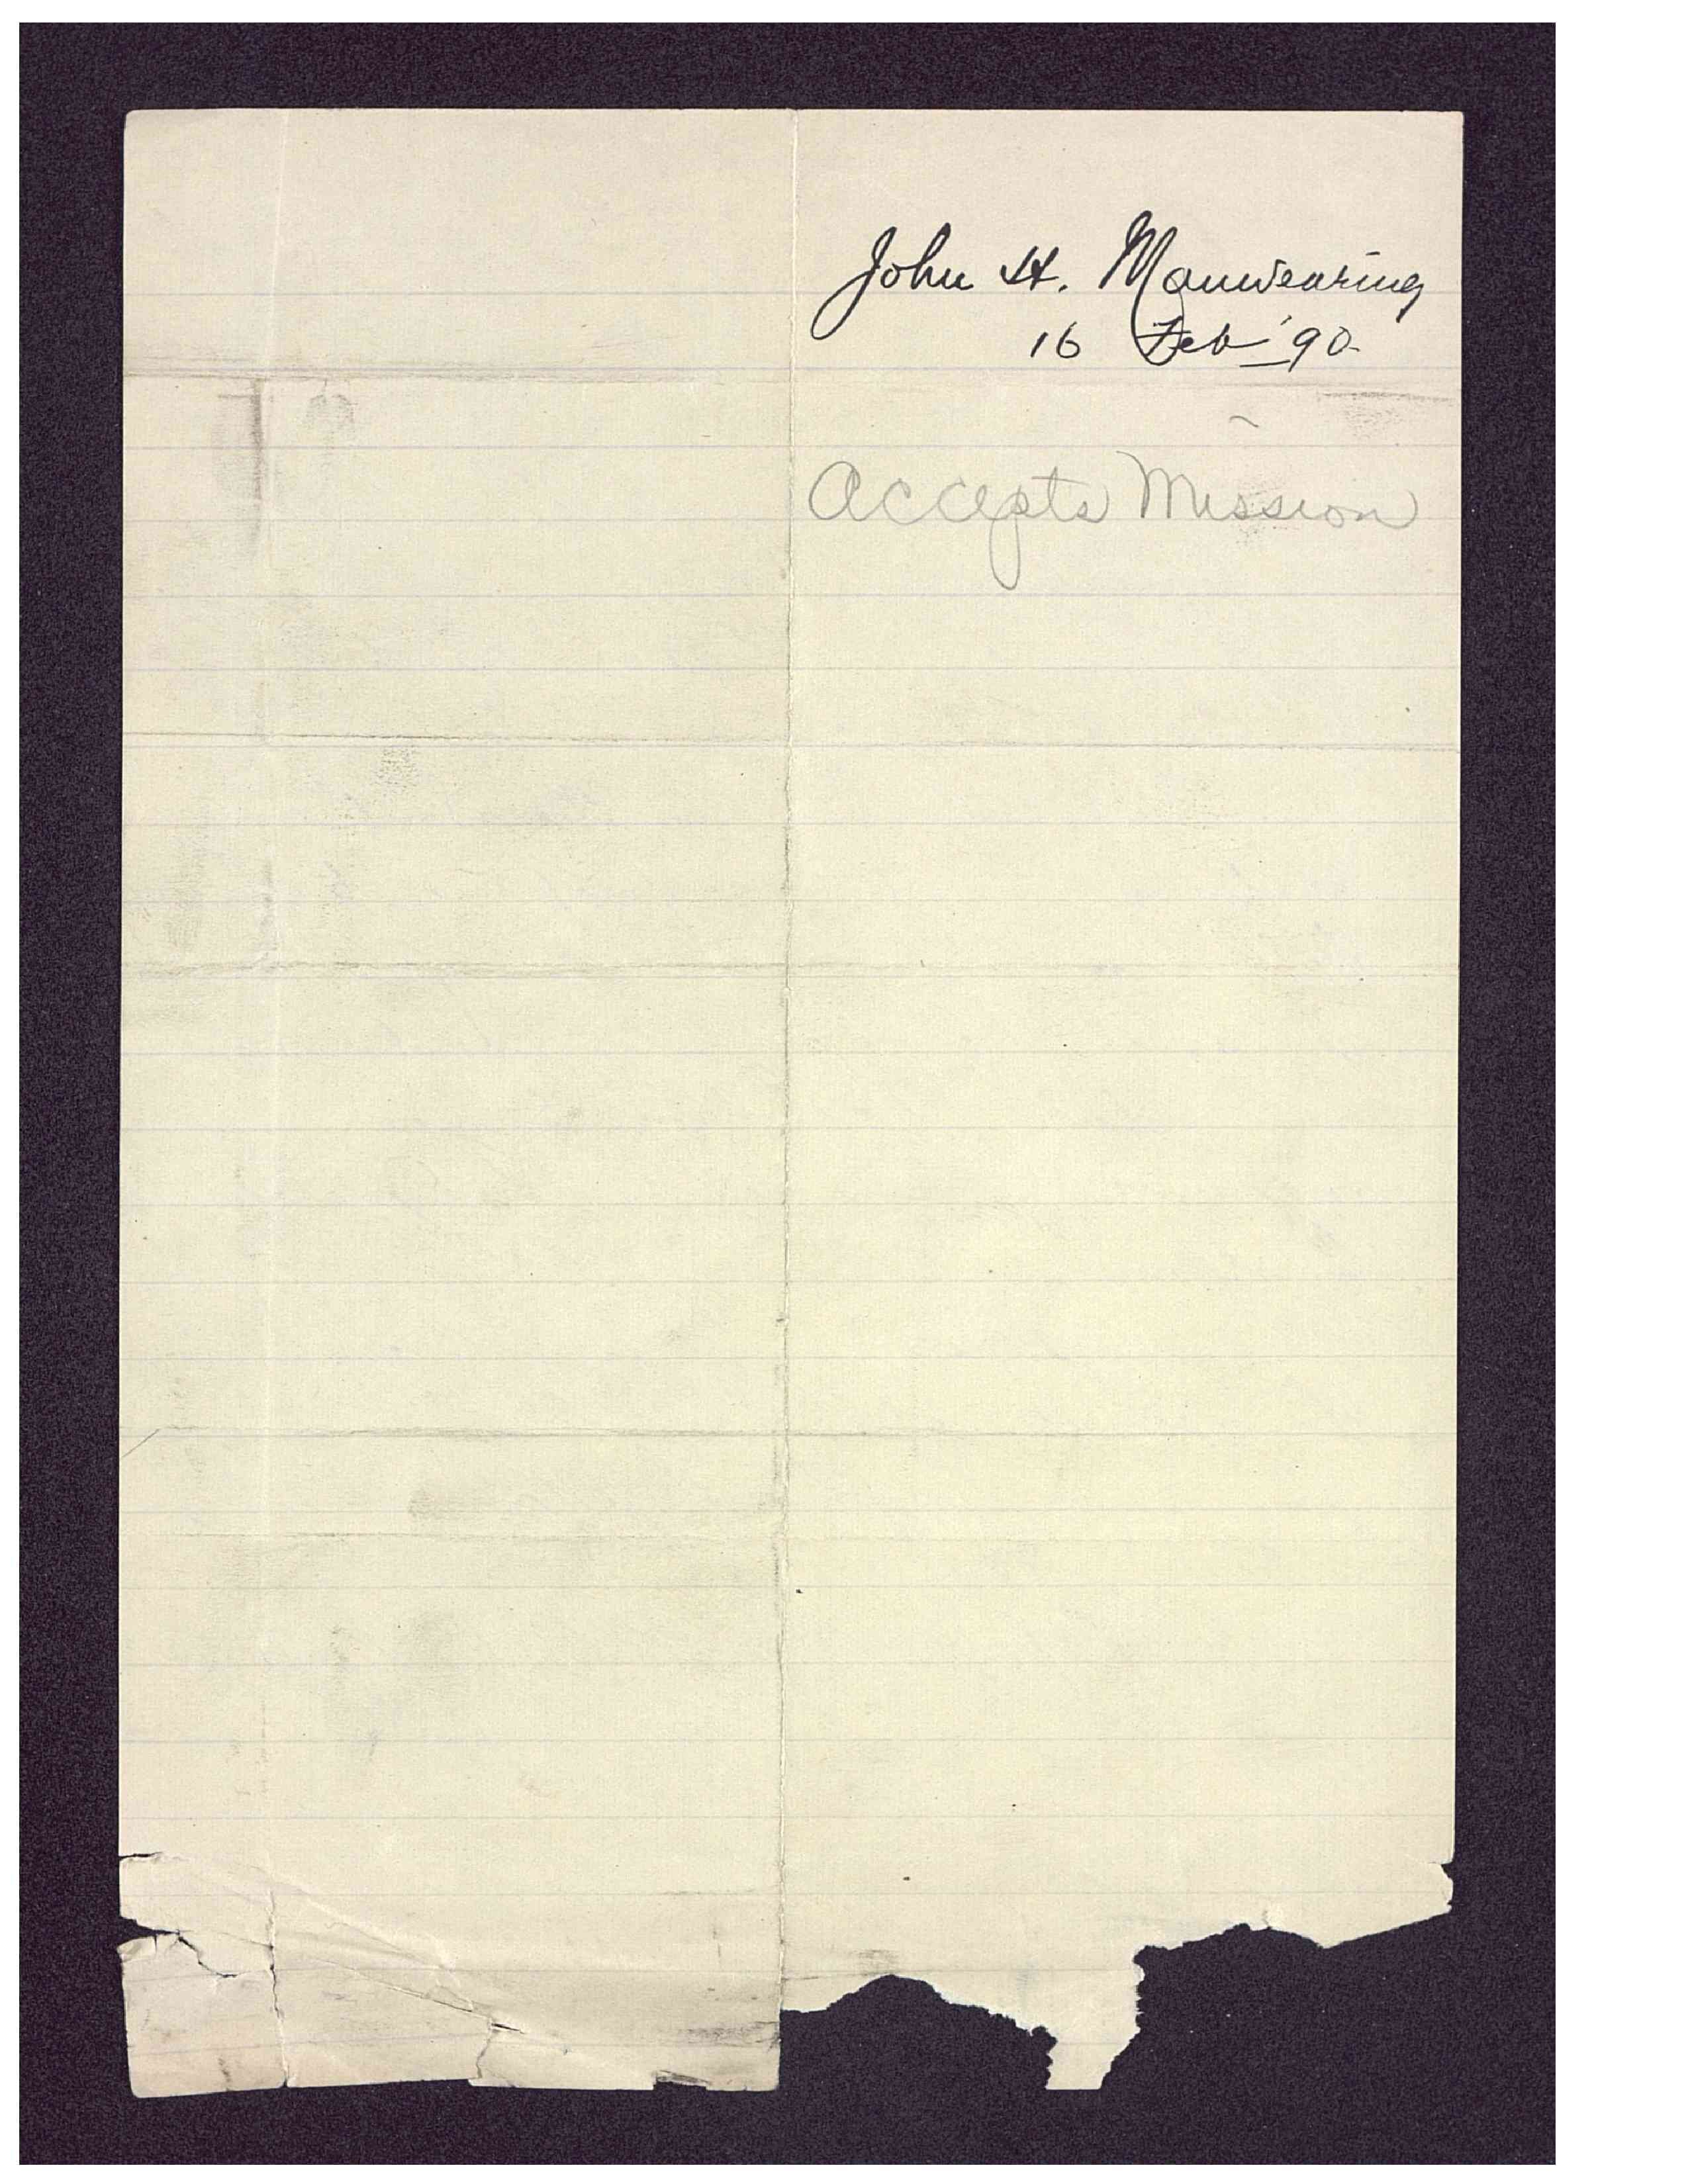 John H. Manwearing
16 Feb '90
Accepts Mission